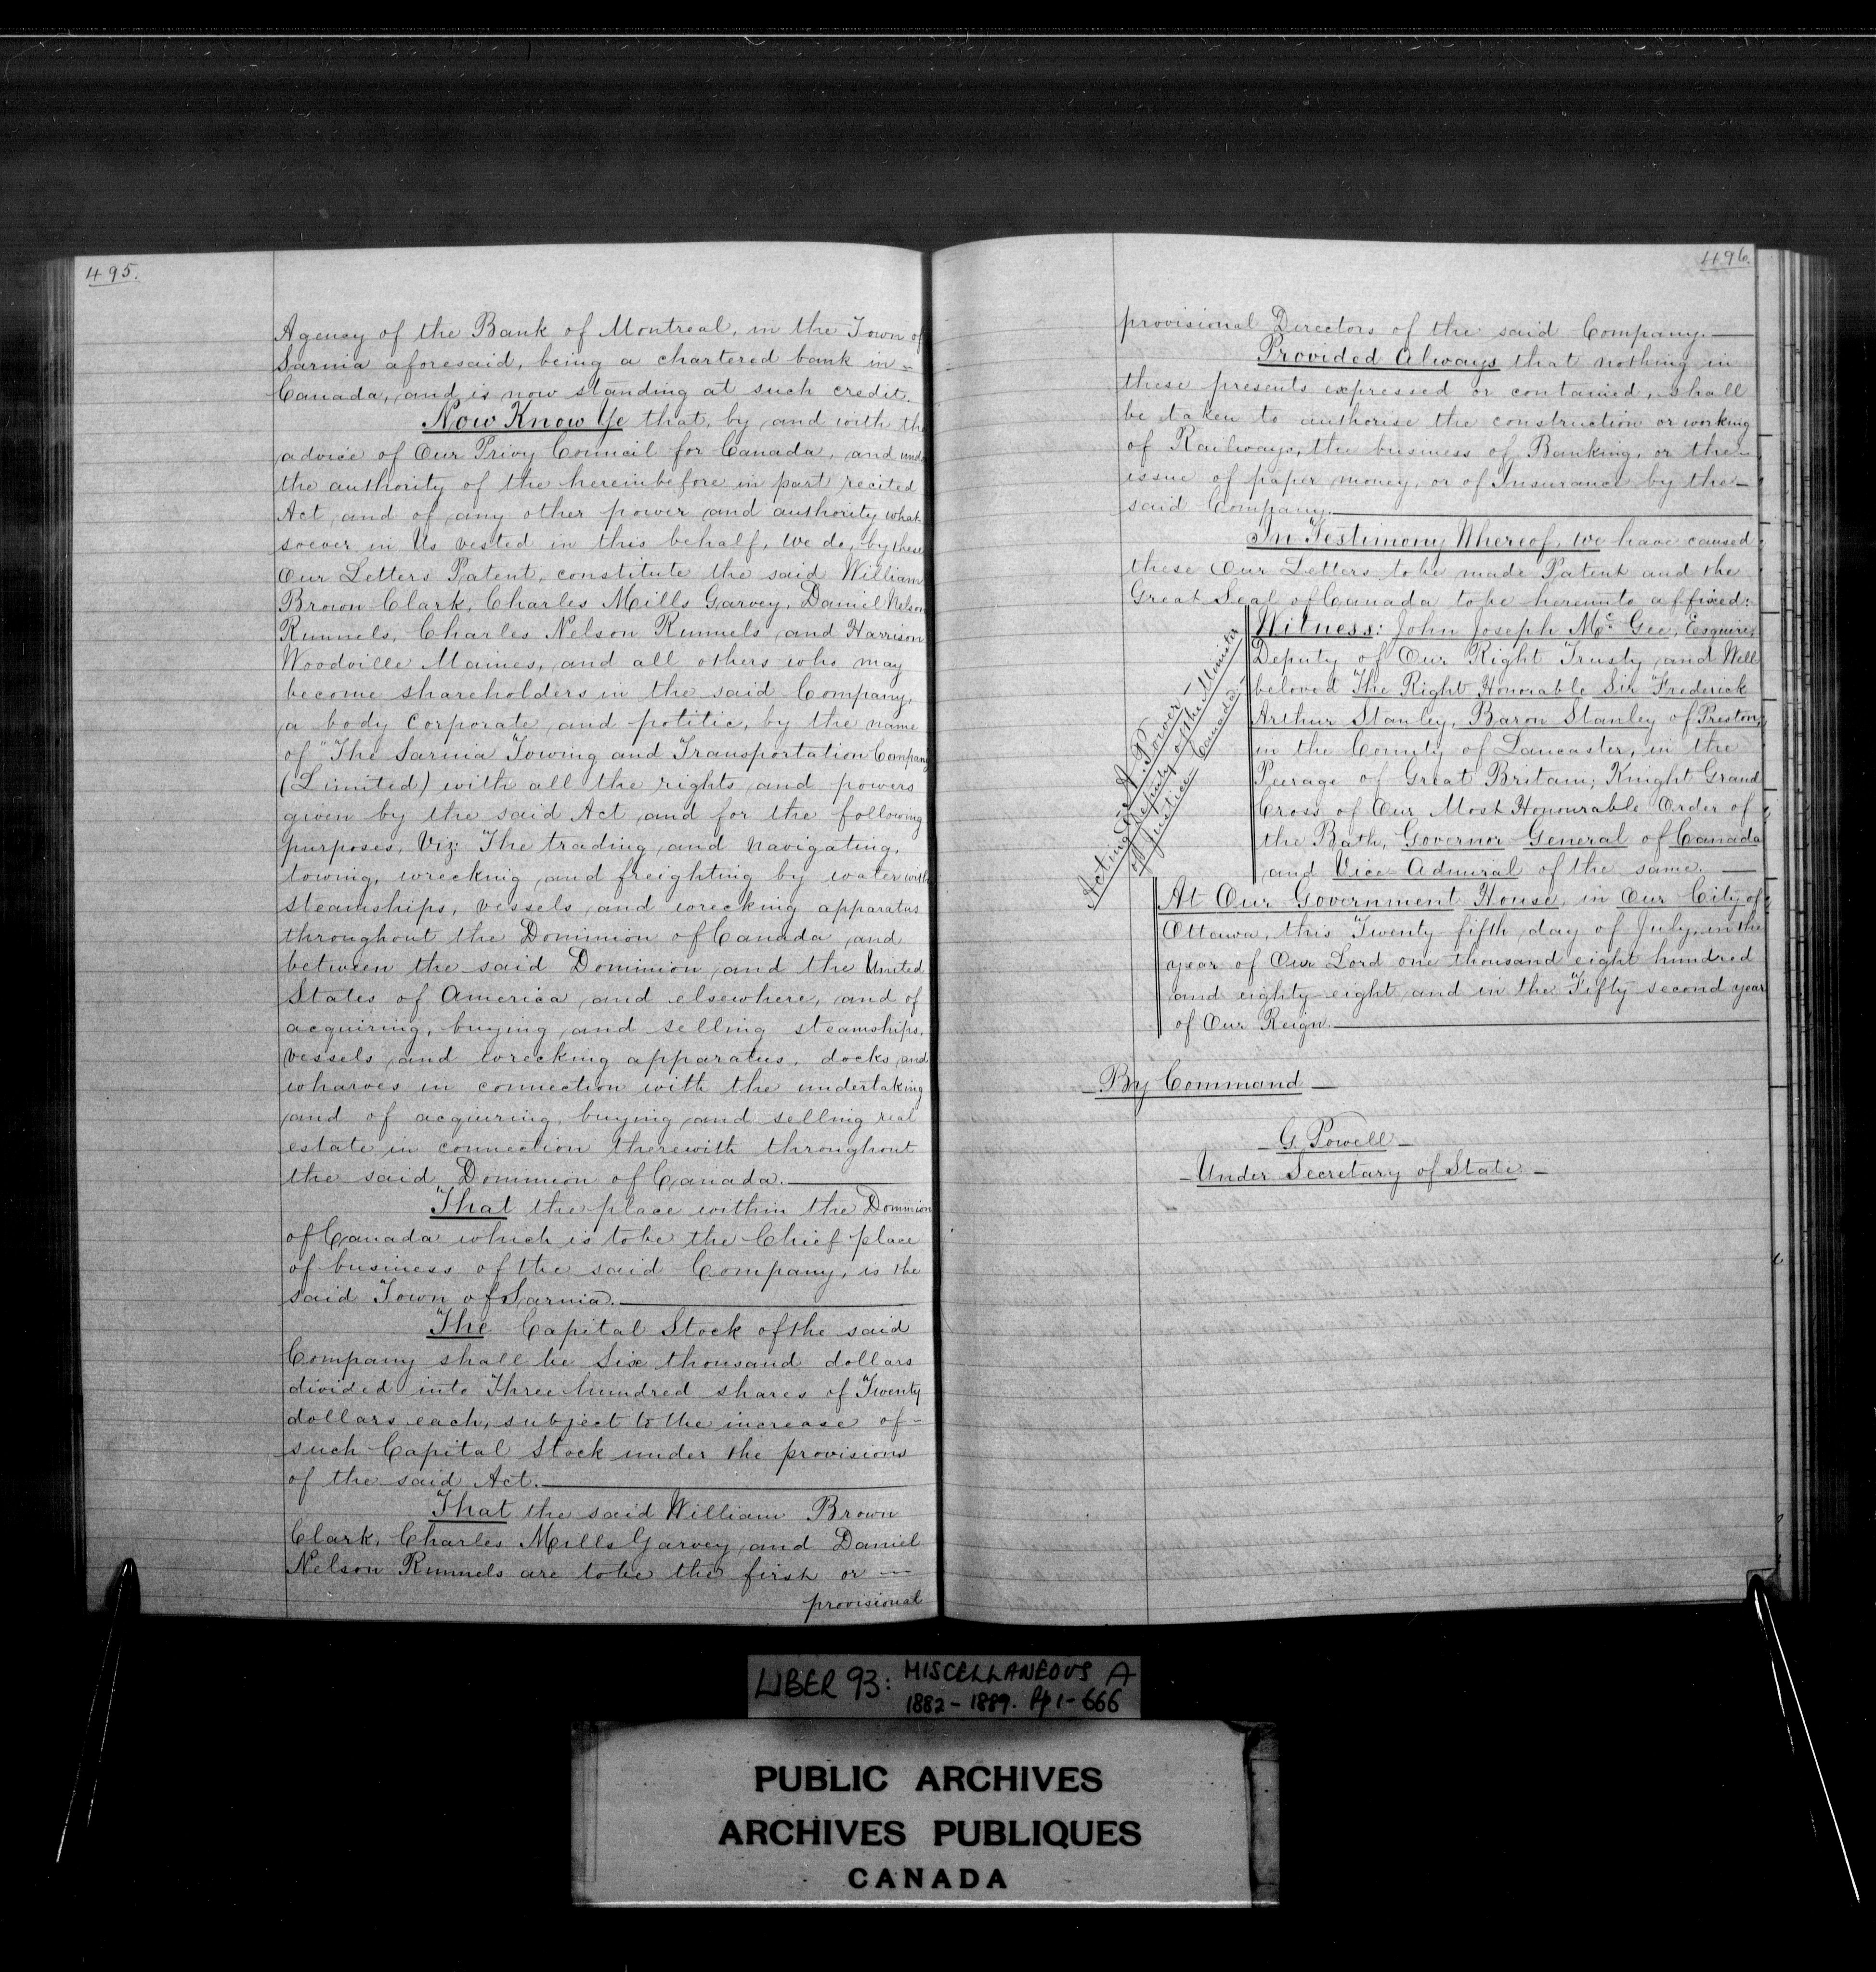 495.
Agency of the Bank of Montreal, in the Town of
Sarnia aforesaid, being a chartered bank in =
Canada, and is now standing at such credit.
Now Know Ye that, by and with the
advice of Our Privy Council for Canada, and unde
the authority of the hereinbefore in part recited
Act and of any other power and authority what-
soever in Us vested in this behalf, We do, by these
Our Letters Patent, constitute the said William
Brown Clark, Charles Mills Garvey, Daniel Nelson
Runnels, Charles Nelson Runnels and Harrison
Woodville Maines, and all others who may
become shareholders in the said Company,
a body corporate and politic, by the name
of "The Sarnia Towing and Transportation Company
(Limited) with all the rights and powers
given by the said Act and for the following
purposes, Viz: The trading and navigating,
towing, wrecking and freighting by water with
steamships, vessels and wrecking apparatus
throughout the Dominion of Canada and
between the said Dominion and the United
States of America and elsewhere, and of
acquiring, buying and selling steamships,
vessels and wrecking apparatus, docks and
wharves in connection with the undertaking
and of acquiring, buying and selling real
estate in connection therewith throughout
the said Dominion of Canada.
That the place within the Dominion
of Canada which is to be the Chief place
of business of the said Company, is the
said Town of Sarnia.
The Capital Stock of the said
Company shall be Six thousand dollars
divided into Three hundred shares of Twenty
dollars each, subject to the increase of -
such Capital Stock under the provisions
of the said Act.
That the said William Brown
Clark, Charles Mills Garvey and Daniel
Nelson Runnels are to be the first or —
provisional
496.
provisional Directors of the said Company.
Provided Always that nothing in
these presents expressed or contained, shall
be taken to authorise the construction or working
of Railways, the business of Banking, or the—
issue of paper money, or of Insurance by the—
said Company.
In Testimony Whereof, We have caused
these Our Letters to be made Patent and the
Great Seal of Canada to be hereunto affixed:
Witness: John Joseph McGee, Esquire,
Deputy of Our Right Trusty and Well
beloved The Right Honorable Sir Frederick
Arthur Stanley, Baron Stanley of Preston,
in the County of Lancaster, in the
Peerage of Great Britain; Knight Grand
Cross of Our Most Honourable Order of
the Bath, Governor General of Canada
and Vice Admiral of the same. —
A. Power —
Acting Deputy of the Minister
of Justice, Canada. —
At Our Government House, in Our City of
Ottawa, this Twenty fifth day of July, in the
year of Our Lord one thousand eight hundred
and eighty-eight and in the Fifty second year
of Our Reign.
By Command —
— G. Powell —
— Under Secretary of State —
LIBER 93: MISCELLANEOUS A
1882 - 1889. Pp 1 - 666
PUBLIC ARCHIVES
ARCHIVES PUBLIQUES
CANADA